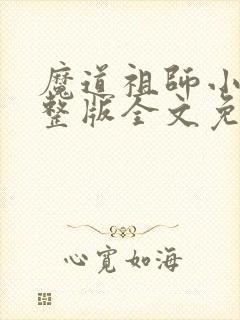 魔道祖師小
整版全文免
心寬如海